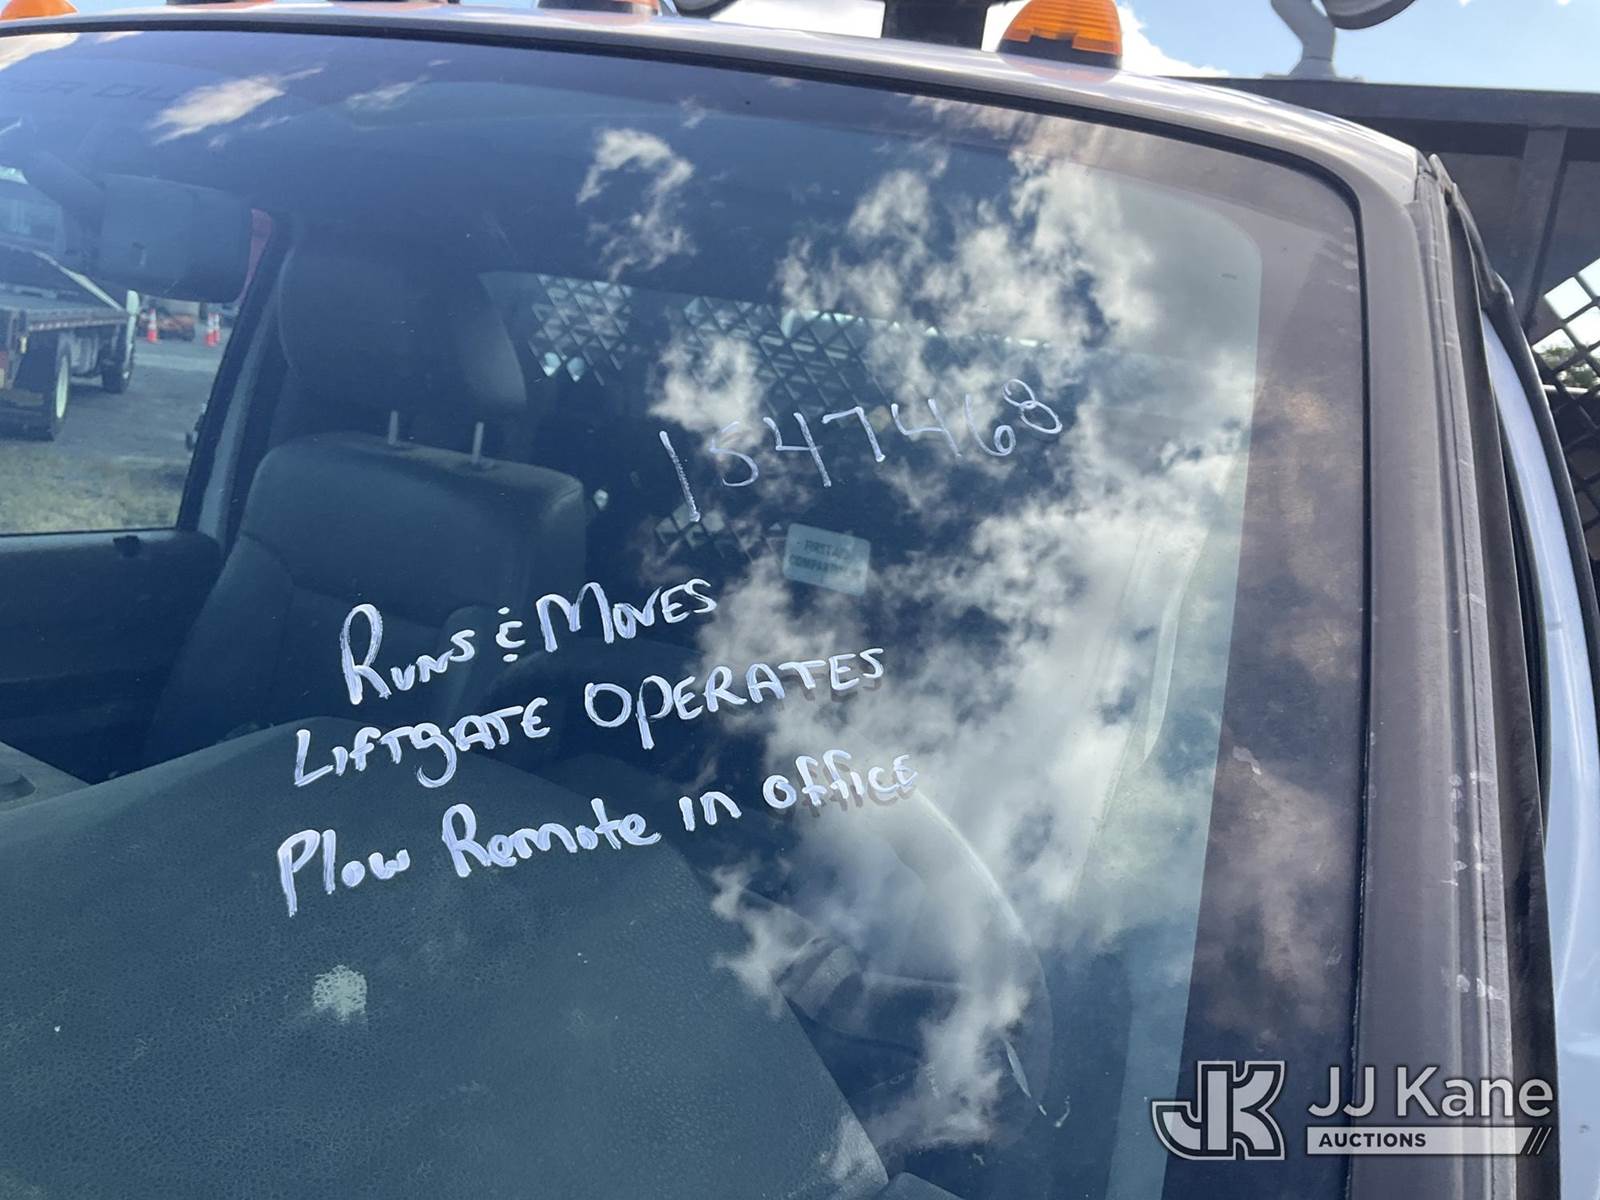 1547468
FIRST AID
Runs & Moves
Liftgate Operates
Plow Remote in office
JK
JJ Kane
AUCTIONS